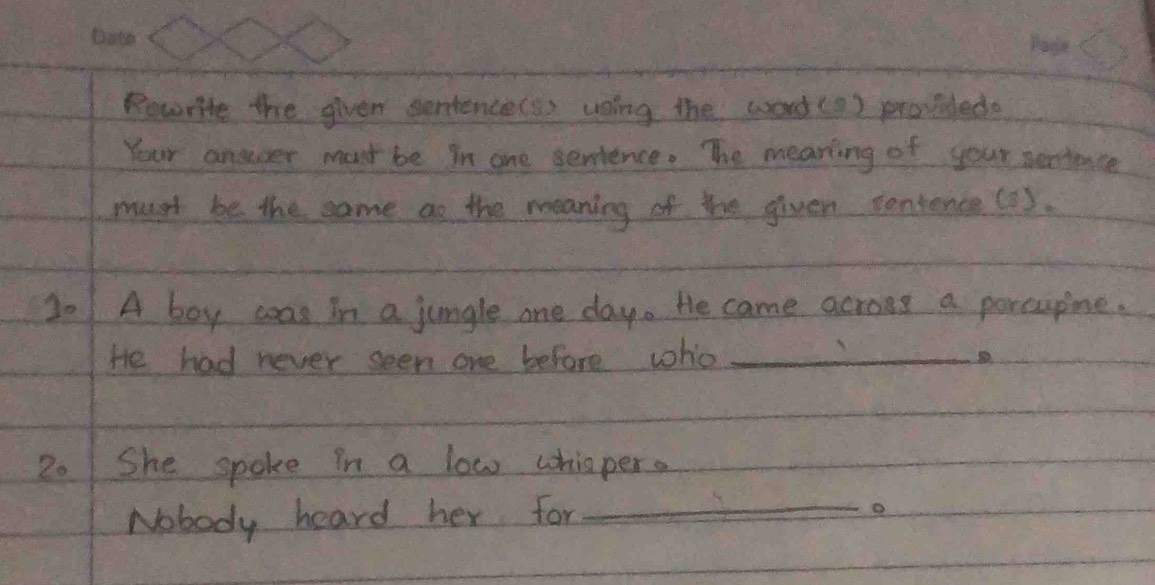 Date
Page
Rewrite the given sentence(s) using the word(s) provided.
Your answer must be in one sentence. The meaning of your sentence
must be the same as the meaning of the given sentence (s).
1. A boy was in a jungle one day. He came across a porcupine.
He had never seen one before who ________.
2. She spoke in a low whisper.
Nobody heard her for ________.